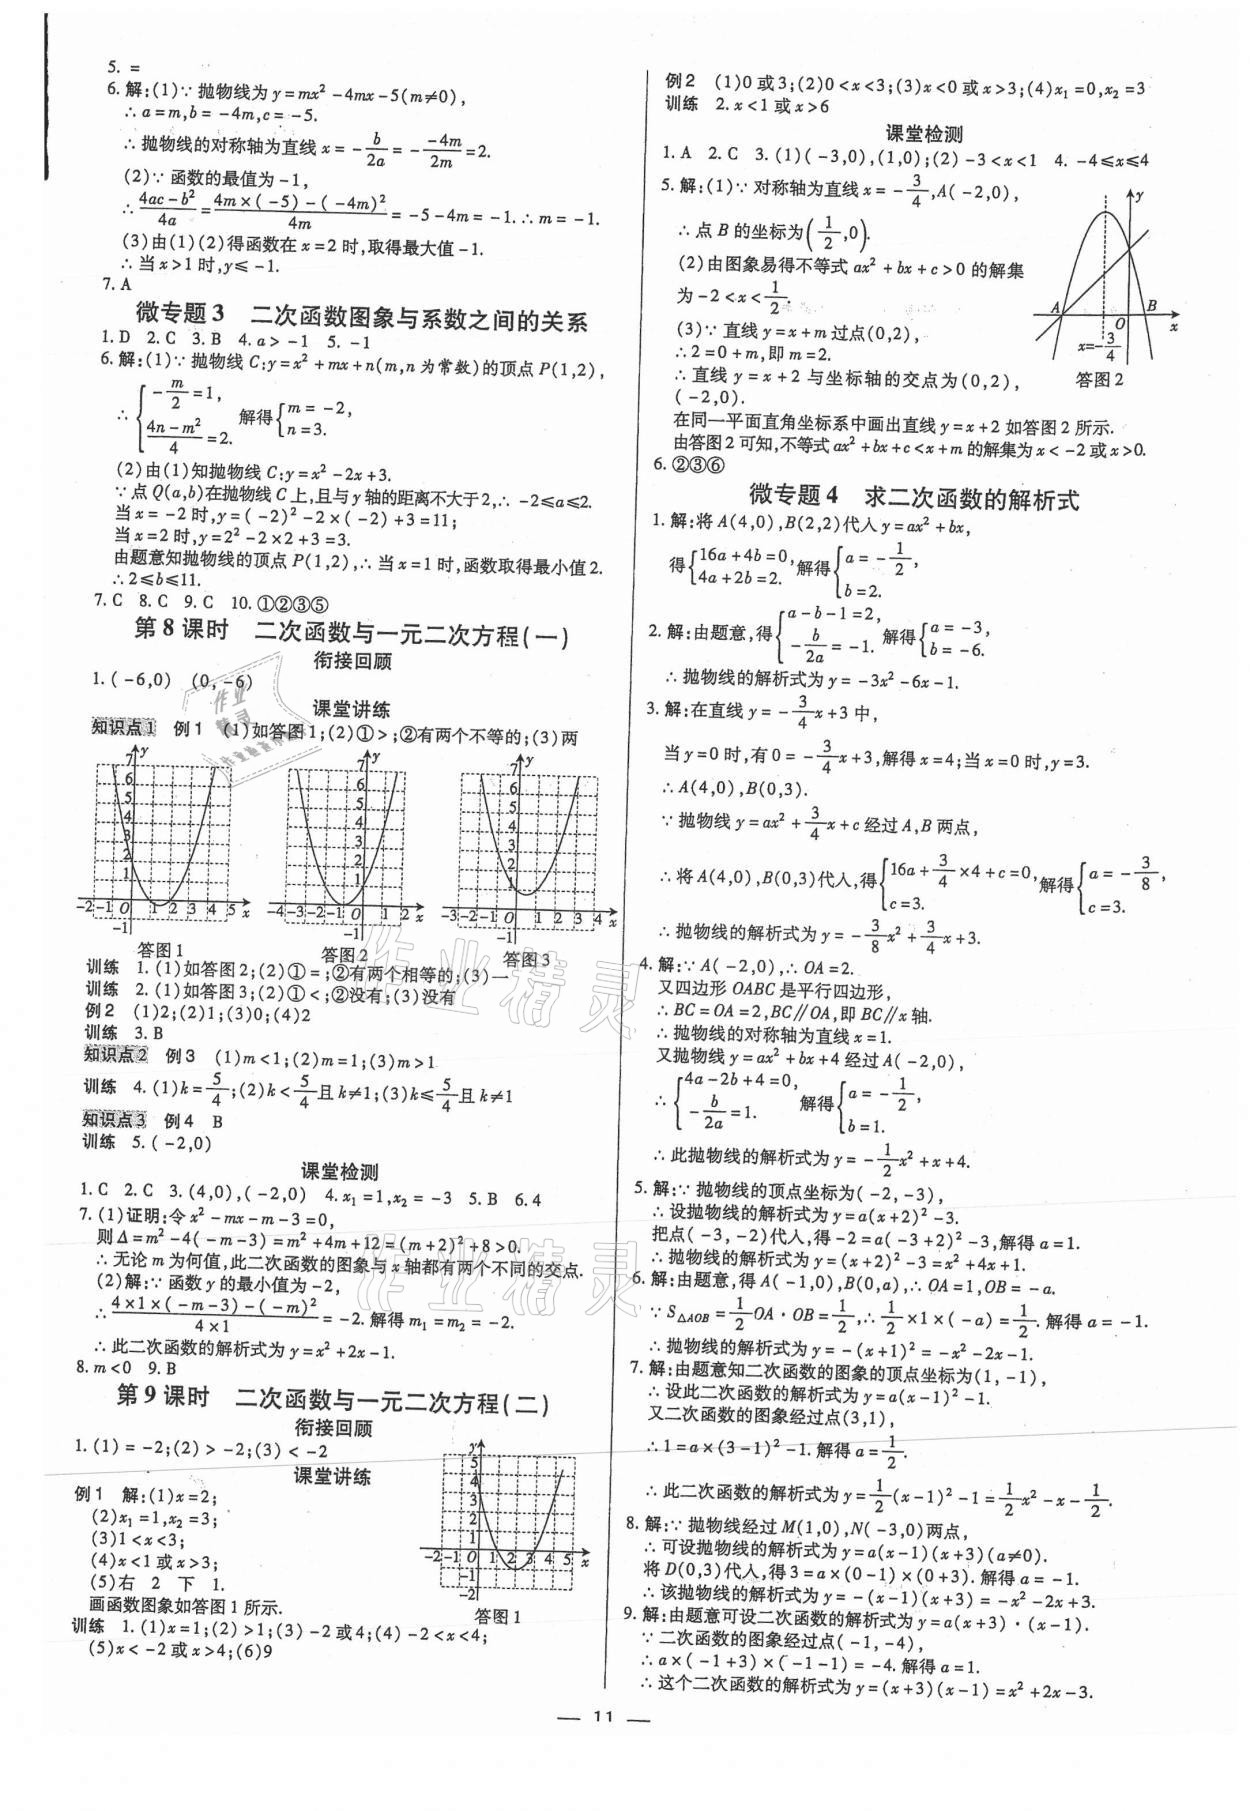 5. =
6. 解:(1)∵ 抛物线为 y=mx²-4mx-5(m≠0),
∴ a=m,b=-4m,c=-5.
∴ 抛物线的对称轴为直线 x=-b/2a=--4m/2m=2.
(2)∵ 函数的最值为-1,
∴ 4ac-b²/4a=4m×(-5)-(-4m)²/4m=-5-4m=-1.∴ m=-1.
(3)由(1)(2)得函数在 x=2 时,取得最大值-1.
∴ 当 x>1 时,y≤-1.
7. A
微专题 3 二次函数图象与系数之间的关系
1. D 2. C 3. B 4. a>-1 5. -1
6. 解:(1)∵ 抛物线 C:y=x²+mx+n(m,n 为常数)的顶点 P(1,2),
∴ {-m/2=1, 4n-m²/4=2. 解得{m=-2, n=3.
(2)由(1)知抛物线 C:y=x²-2x+3.
∵ 点 Q(a,b)在抛物线 C 上,且与 y 轴的距离不大于2,∴ -2≤a≤2.
当 x=-2 时,y=(-2)²-2×(-2)+3=11;
当 x=2 时,y=2²-2×2+3=3.
由题意知抛物线的顶点 P(1,2),∴ 当 x=1 时,函数取得最小值2.
∴ 2≤b≤11.
7. C 8. C 9. C 10. ①②③⑤
第 8 课时 二次函数与一元二次方程(一)
衔接回顾
1. (-6,0) (0,-6)
课堂讲练
知识点1 例1 (1)如答图1;(2)①>;②有两个不等的;(3)两
答图1
答图2
答图3
训练 1. (1)如答图2;(2)①=;②有两个相等的;(3)一
训练 2. (1)如答图3;(2)①<;②没有;(3)没有
例2 (1)2;(2)1;(3)0;(4)2
训练 3. B
知识点2 例3 (1)m<1;(2)m=1;(3)m>1
训练 4. (1)k=5/4;(2)k<5/4且 k≠1;(3)k≤5/4且 k≠1
知识点3 例4 B
训练 5. (-2,0)
课堂检测
1. C 2. C 3. (4,0),(-2,0) 4. x₁=1,x₂=-3 5. B 6. 4
7. (1)证明:令 x²-mx-m-3=0,
则 Δ=m²-4(-m-3)=m²+4m+12=(m+2)²+8>0.
∴ 无论 m 为何值,此二次函数的图象与 x 轴都有两个不同的交点.
(2)解:∵ 函数 y 的最小值为-2,
∴ 4×1×(-m-3)-(-m)²/4×1=-2. 解得 m₁=m₂=-2.
∴ 此二次函数的解析式为 y=x²+2x-1.
8. m<0 9. B
第 9 课时 二次函数与一元二次方程(二)
衔接回顾
1. (1)=-2;(2)>-2;(3)<-2
课堂讲练
例1 解:(1)x=2;
(2)x₁=1,x₂=3;
(3)1<x<3;
(4)x<1 或 x>3;
(5)右 2 下 1.
画函数图象如答图1所示.
答图1
训练 1. (1)x=1;(2)>1;(3)-2 或 4;(4)-2<x<4;
(5)x<-2 或 x>4;(6)9
例2 (1)0 或 3;(2)0<x<3;(3)x<0 或 x>3;(4)x₁=0,x₂=3
训练 2. x<1 或 x>6
课堂检测
1. A 2. C 3. (1)(-3,0),(1,0);(2)-3<x<1 4. -4≤x≤4
5. 解:(1)∵ 对称轴为直线 x=-3/4,A(-2,0),
∴ 点 B 的坐标为(1/2,0).
(2)由图象易得不等式 ax²+bx+c>0 的解集
为-2<x<1/2.
(3)∵ 直线 y=x+m 过点(0,2),
∴ 2=0+m,即 m=2.
∴ 直线 y=x+2 与坐标轴的交点为(0,2),
(-2,0).
答图2
在同一平面直角坐标系中画出直线 y=x+2 如答图2所示.
由答图2可知,不等式 ax²+bx+c<x+m 的解集为 x<-2 或 x>0.
6. ②③⑥
微专题 4 求二次函数的解析式
1. 解:将 A(4,0),B(2,2)代入 y=ax²+bx,
得{16a+4b=0, 4a+2b=2. 解得{a=-1/2, b=2.
2. 解:由题意,得{a-b-1=2, -b/2a=-1. 解得{a=-3, b=-6.
∴ 抛物线的解析式为 y=-3x²-6x-1.
3. 解:在直线 y=-3/4x+3 中,
当 y=0 时,有 0=-3/4x+3,解得 x=4;当 x=0 时,y=3.
∴ A(4,0),B(0,3).
∵ 抛物线 y=ax²+3/4x+c 经过 A,B 两点,
∴ 将 A(4,0),B(0,3)代入,得{16a+3/4×4+c=0, c=3. 解得{a=-3/8, c=3.
∴ 抛物线的解析式为 y=-3/8x²+3/4x+3.
4. 解:∵ A(-2,0),∴ OA=2.
又四边形 OABC 是平行四边形,
∴ BC=OA=2,BC∥OA,即 BC∥x 轴.
∴ 抛物线的对称轴为直线 x=1.
又抛物线 y=ax²+bx+4 经过 A(-2,0),
∴ {4a-2b+4=0, -b/2a=1. 解得{a=-1/2, b=1.
∴ 此抛物线的解析式为 y=-1/2x²+x+4.
5. 解:∵ 抛物线的顶点坐标为(-2,-3),
∴ 设抛物线的解析式为 y=a(x+2)²-3.
把点(-3,-2)代入,得-2=a(-3+2)²-3,解得 a=1.
∴ 抛物线的解析式为 y=(x+2)²-3=x²+4x+1.
6. 解:由题意,得 A(-1,0),B(0,a),∴ OA=1,OB=-a.
∵ S△AOB=1/2OA·OB=1/2,∴ 1/2×1×(-a)=1/2. 解得 a=-1.
∴ 抛物线的解析式为 y=-(x+1)²=-x²-2x-1.
7. 解:由题意知二次函数的图象的顶点坐标为(1,-1),
∴ 设此二次函数的解析式为 y=a(x-1)²-1.
又二次函数的图象经过点(3,1),
∴ 1=a×(3-1)²-1. 解得 a=1/2.
∴ 此二次函数的解析式为 y=1/2(x-1)²-1=1/2x²-x-1/2.
8. 解:∵ 抛物线经过 M(1,0),N(-3,0)两点,
∴ 可设抛物线的解析式为 y=a(x-1)(x+3)(a≠0).
将 D(0,3)代入,得 3=a×(0-1)×(0+3). 解得 a=-1.
∴ 该抛物线的解析式为 y=-(x-1)(x+3)=-x²-2x+3.
9. 解:由题意可设二次函数的解析式为 y=a(x+3)·(x-1).
∵ 二次函数的图象经过点(-1,-4),
∴ a×(-1+3)×(-1-1)=-4. 解得 a=1.
∴ 这个二次函数的解析式为 y=(x+3)(x-1)=x²+2x-3.
— 11 —